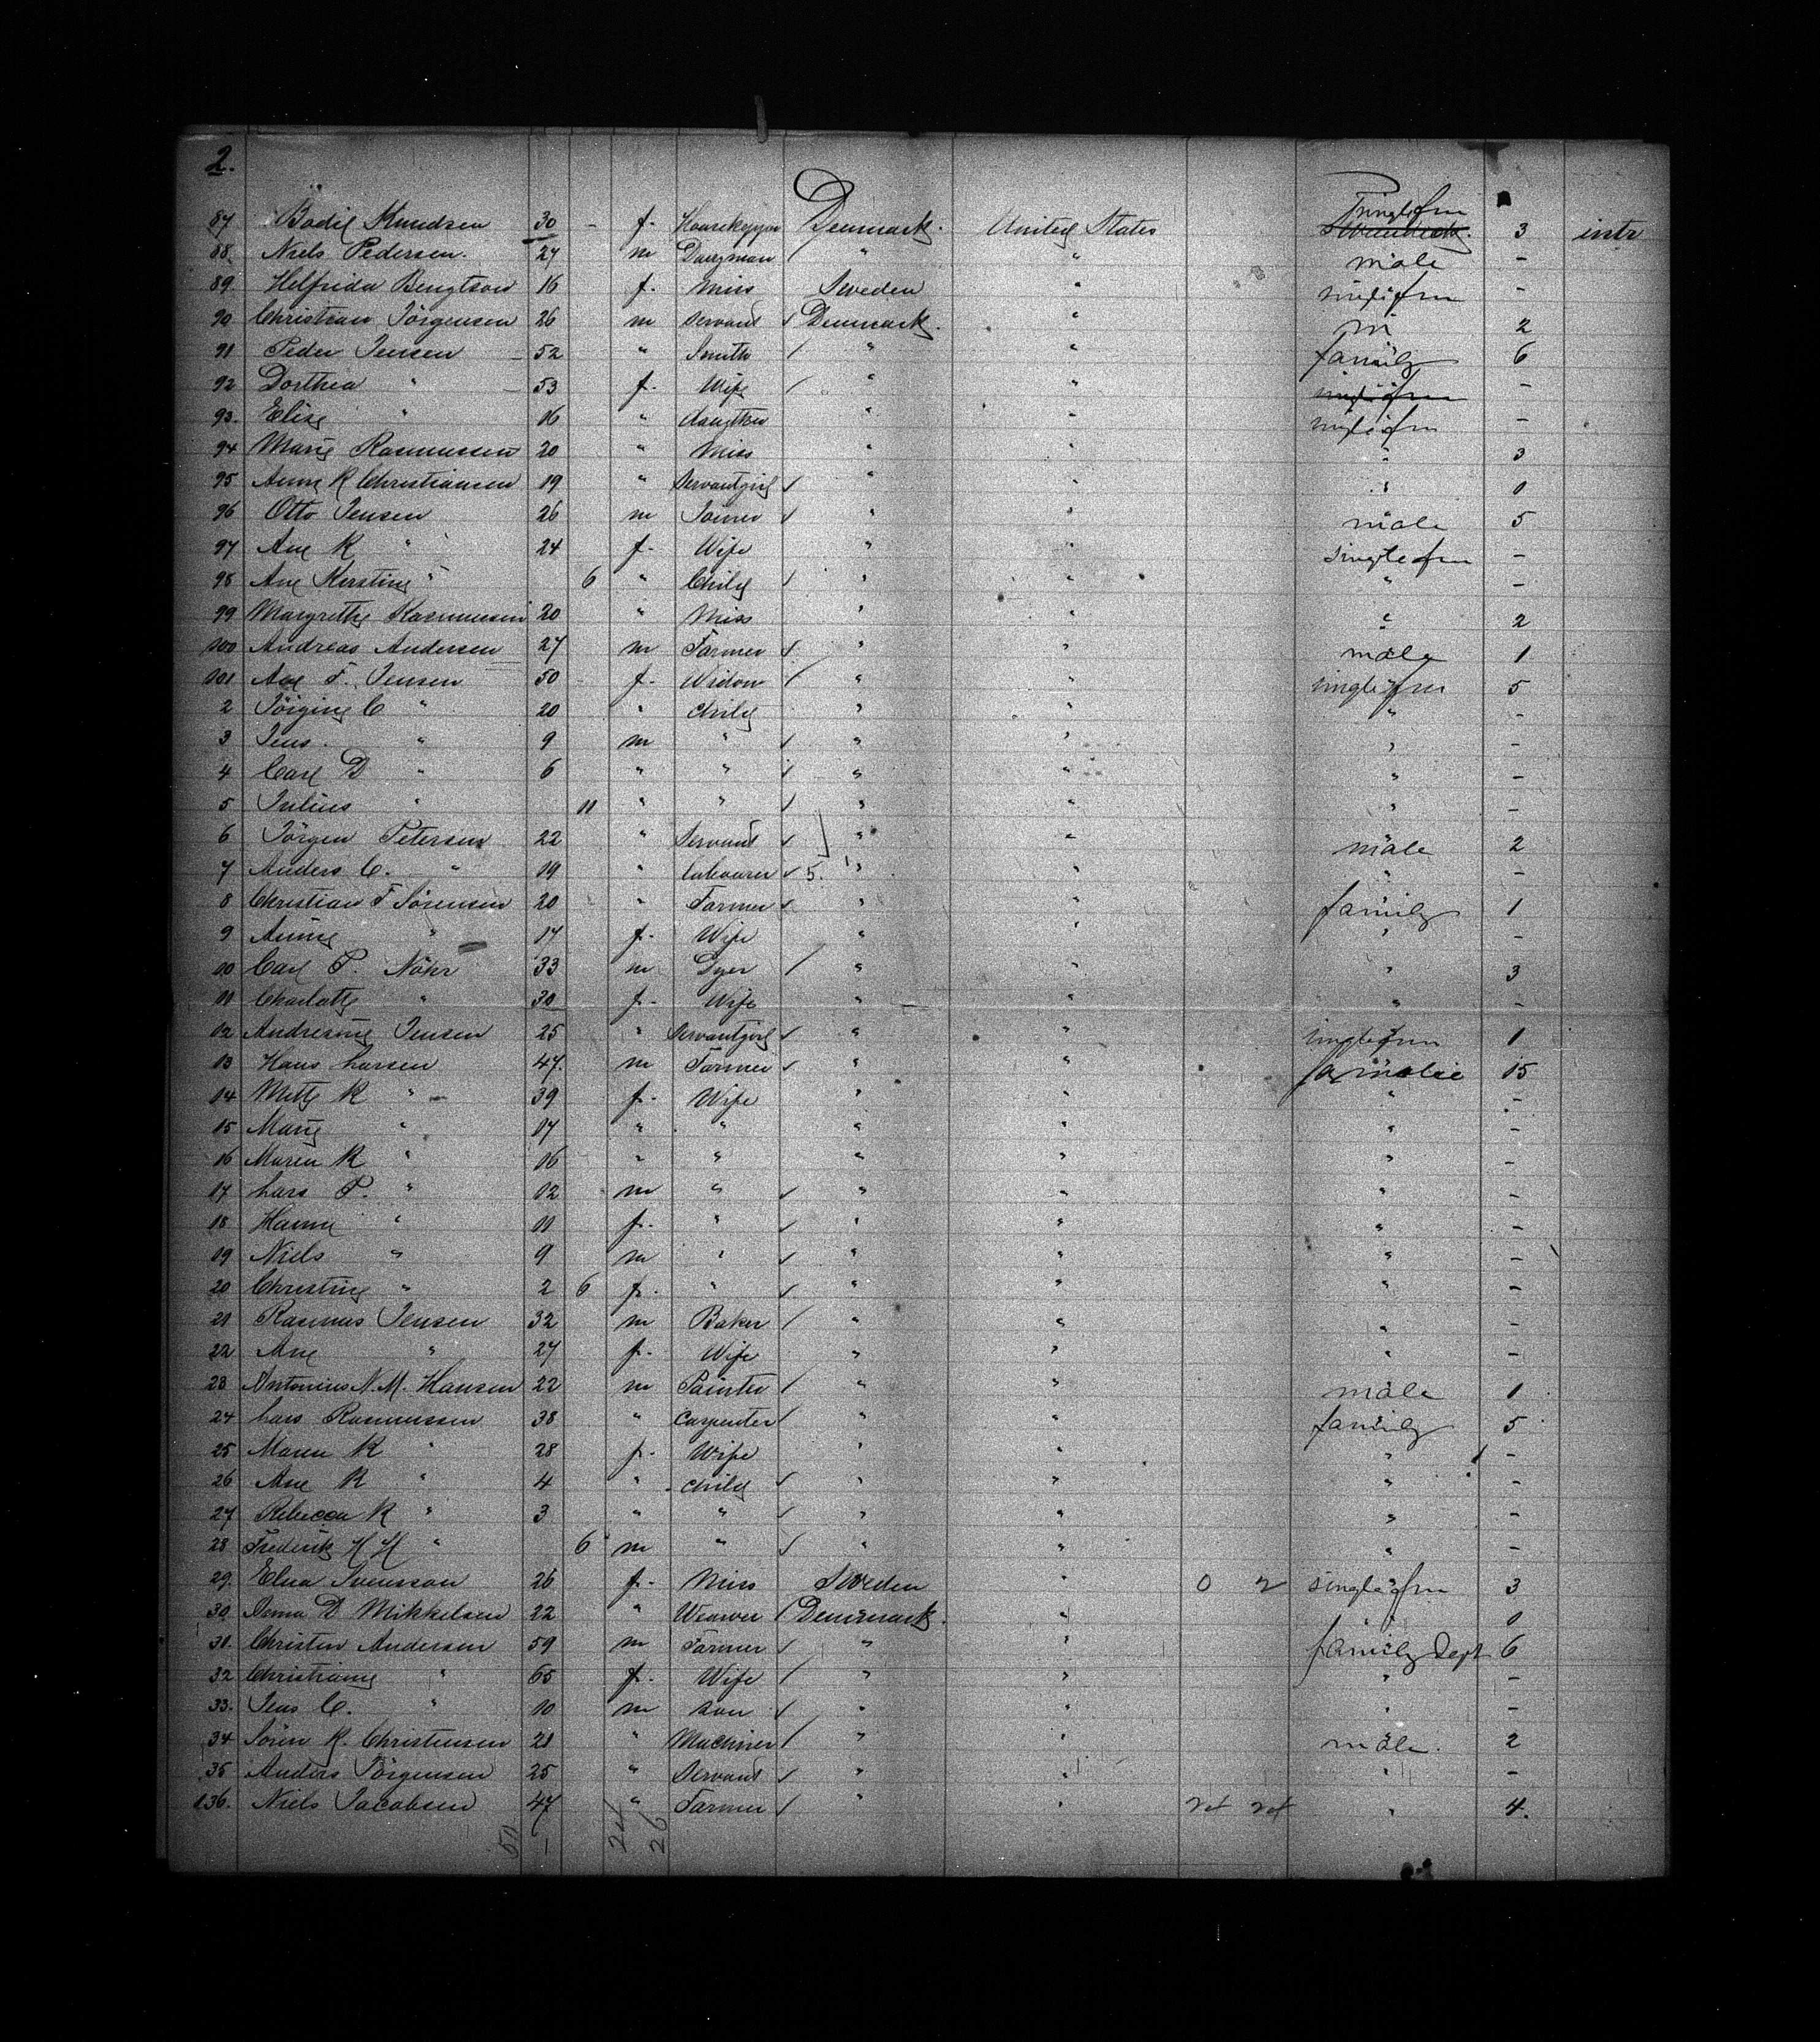 2.
87 Bodil Knudsen 30 - f. Housekepper Denmark. United States Singlefm 3 intr
88 Niels Pedersen. 27 m " " male -
89 Helfrida Bengtson 16 f. Miss Sweden " singlefm -
90 Christian Jörgensen 26 m Servant Denmark. " m 2
91 Peder Jensen 52 " Smith " " family 6
92 Dorthea " 53 f. Wife " " -
93. Elise " 16 " daugther " " singlefm -
94 Marie Rasmussen 20 " Miss " " " 3
95 Anne K Christiansen 19 " Servantgirl " " " 0
96 Otto Jensen 26 m Joiner " " male 5
97 Ane K " 24 f. Wife " " singlefm -
98 Ane Kirstine " 6 " Child " " " -
99 Margrethe Rasmussen 20 " Miss " " " 2
100 Andreas Andersen 27 m Farmer " " male 1
101 Ane F. Jensen 50 - f. Widow " " singlefm 5
2 Jörgine C " 20 " child " " " -
3 Jens. " 9 m " " " " -
4 Carl D " 6 " " " " " -
5 Julius " 11 " " " " " -
6 Jörgen Petersen 22 " Servant " " male 2
7 Anders C. " 19 " labourer 5. " " " -
8 Christian F Sörensen 20 " Farmer " " family 1
9 Anne " 17 f. Wife " " " -
10 Carl P. Nöhr 33 m Dyer " " " 3
11 Charlotte " 30 f. Wife " " " -
12 Andresine Jensen 25 " Servantgirl " " singlefm 1
13 Hans Larsen 47. m Farmer " " familie 15
14 Mette K " 39 f. Wife " " " -
15 Marie " 17 " " " " " -
16 Maren K " 16 " " " " " -
17 Lars P. " 12 m " " " " -
18 Hanne " 11 f. " " " " -
19 Niels " 9 m " " " " -
20 Christine " 2 6 f. " " " " -
21 Rasmus Jensen 32 m Baker " " " -
22 Ane " 27 f. Wife " " " -
23 Antonius N. M. Hansen 22 m Painter " " male 1
24 Lars Rasmussen 38 " Carpenter " " family 5
25 Maren K " 28 f. Wife " " " -
26 Ane K " 4 " child " " " -
27 Rebecca K " 3 " " " " " -
28 Frederik H H " 6 m " " " " -
29. Elna Svensson 26 f. Miss Sweden " 0 2 singlefm 3
30 D Mikkelsen 22 " Weawer Denmark. " 0
31. Christen Andersen 59 m Farmer " " family Dept 6
32 Christiane " 65 f. Wife " " " -
33. Jens C. " 10 m son " " " -
34 Sören K. Christensen 21 " Machiner " " male. 2
35 Anders Jörgensen 25 " Servant " " " -
136. Niels Jacobsen 47 " Farmer " " 24 24 " 4.
50 - 24 26